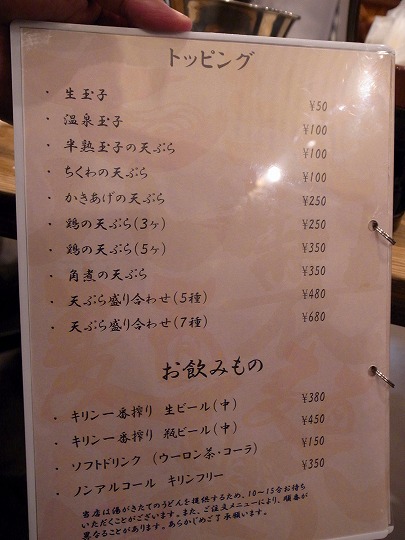 トッピング
・ 生玉子 ¥50
・ 温泉玉子 ¥100
・ 半熟玉子の天ぷら ¥100
・ ちくわの天ぷら ¥100
・ かきあげの天ぷら ¥250
・ 鶏の天ぷら(3ヶ) ¥250
・ 鶏の天ぷら(5ヶ) ¥350
・ 角煮の天ぷら ¥350
・ 天ぷら盛り合わせ(5種) ¥480
・ 天ぷら盛り合わせ(7種) ¥680
お飲みもの
・ キリン一番搾り 生ビール(中) ¥380
・ キリン一番搾り 瓶ビール(中) ¥450
・ ソフトドリンク (ウーロン茶・コーラ) ¥150
・ ノンアルコール キリンフリー ¥350
当店は湯がきたてのうどんを提供するため、10～15分お待ち
いただくことがございます。また、ご注文メニューにより、順番が
異なることがあります。あらかじめご了承願います。